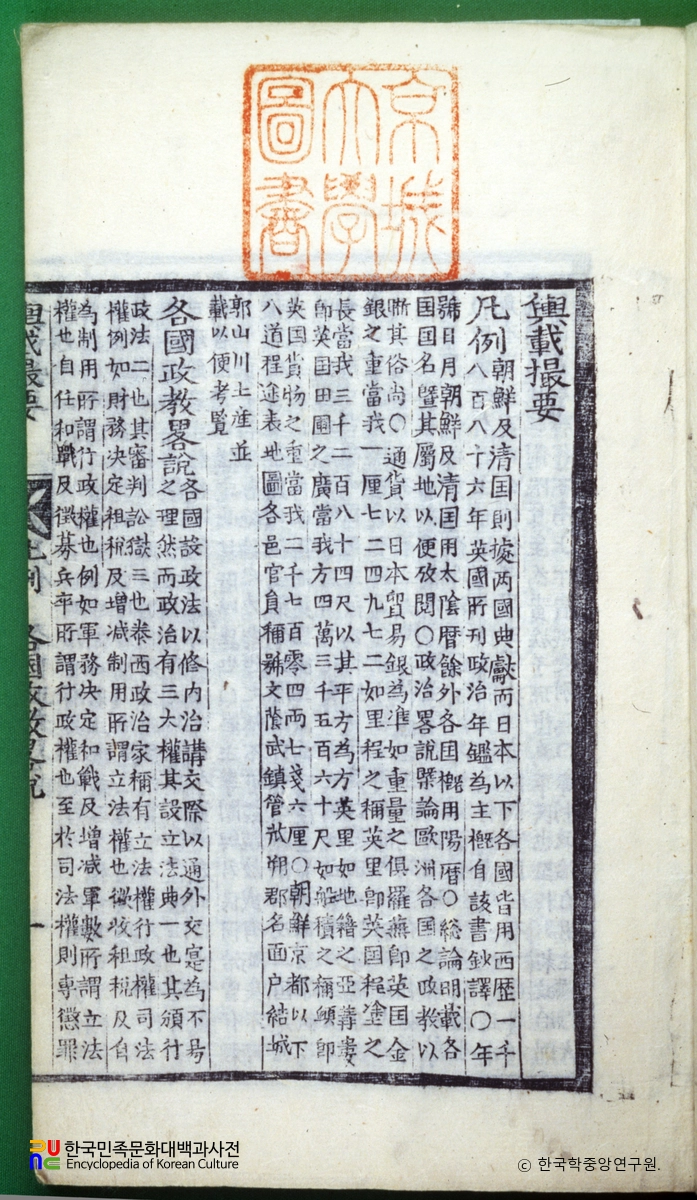 京城
大學
圖書
輿載撮要
凡例
朝鮮及清国則據两國典獻而日本以下各國皆用西歷一千
八百八十六年英國所刊政治年鑑為主概自該書鈔譯〇年
號日月朝鮮及清国用太陰曆餘外各国概用陽曆〇総論明載各
国国名曁其屬地以便攷閱〇政治畧說槩論歐洲各国之政教以
晣其俗尚〇通貨以日本貿易銀為准如重量之俱羅燕卽英国金
銀之重當我一厘七二四九七二如里程之稱英里卽英国程塗之
長當我三千二百八十四尺以其平方為方英里如地籍之亞
卽英国田圃之廣當我方四萬三千五百六十尺如船積之稱頓卽
英国貨物之重當我二千七百零四两七戔六厘〇朝鮮京都以下
八道程途表地圖各邑官負稱號文蔭武鎮管朔郡名面户結城
郭山川土産並
載以便考覧
各國政教畧說
各國設政法以修内治講交際以通外交寔為不易
之理然而政治有三大權其設立法典一也其頒行
政法二也其審判訟獄三也泰西政治家稱有立法權行政權司法
權例如財務决定租稅及增减制用所謂立法權也徵收租稅及自
為制用所謂行政權也例如軍務决定和戰及增减軍數所謂立法
權也自任和戰及徵募兵卒所謂行政權也至於司法權則專懲罪
輿載撮要
凡例
各國政教畧說
一
한국민족문화대백과사전
Encyclopedia of Korean Culture
© 한국학중앙연구원.